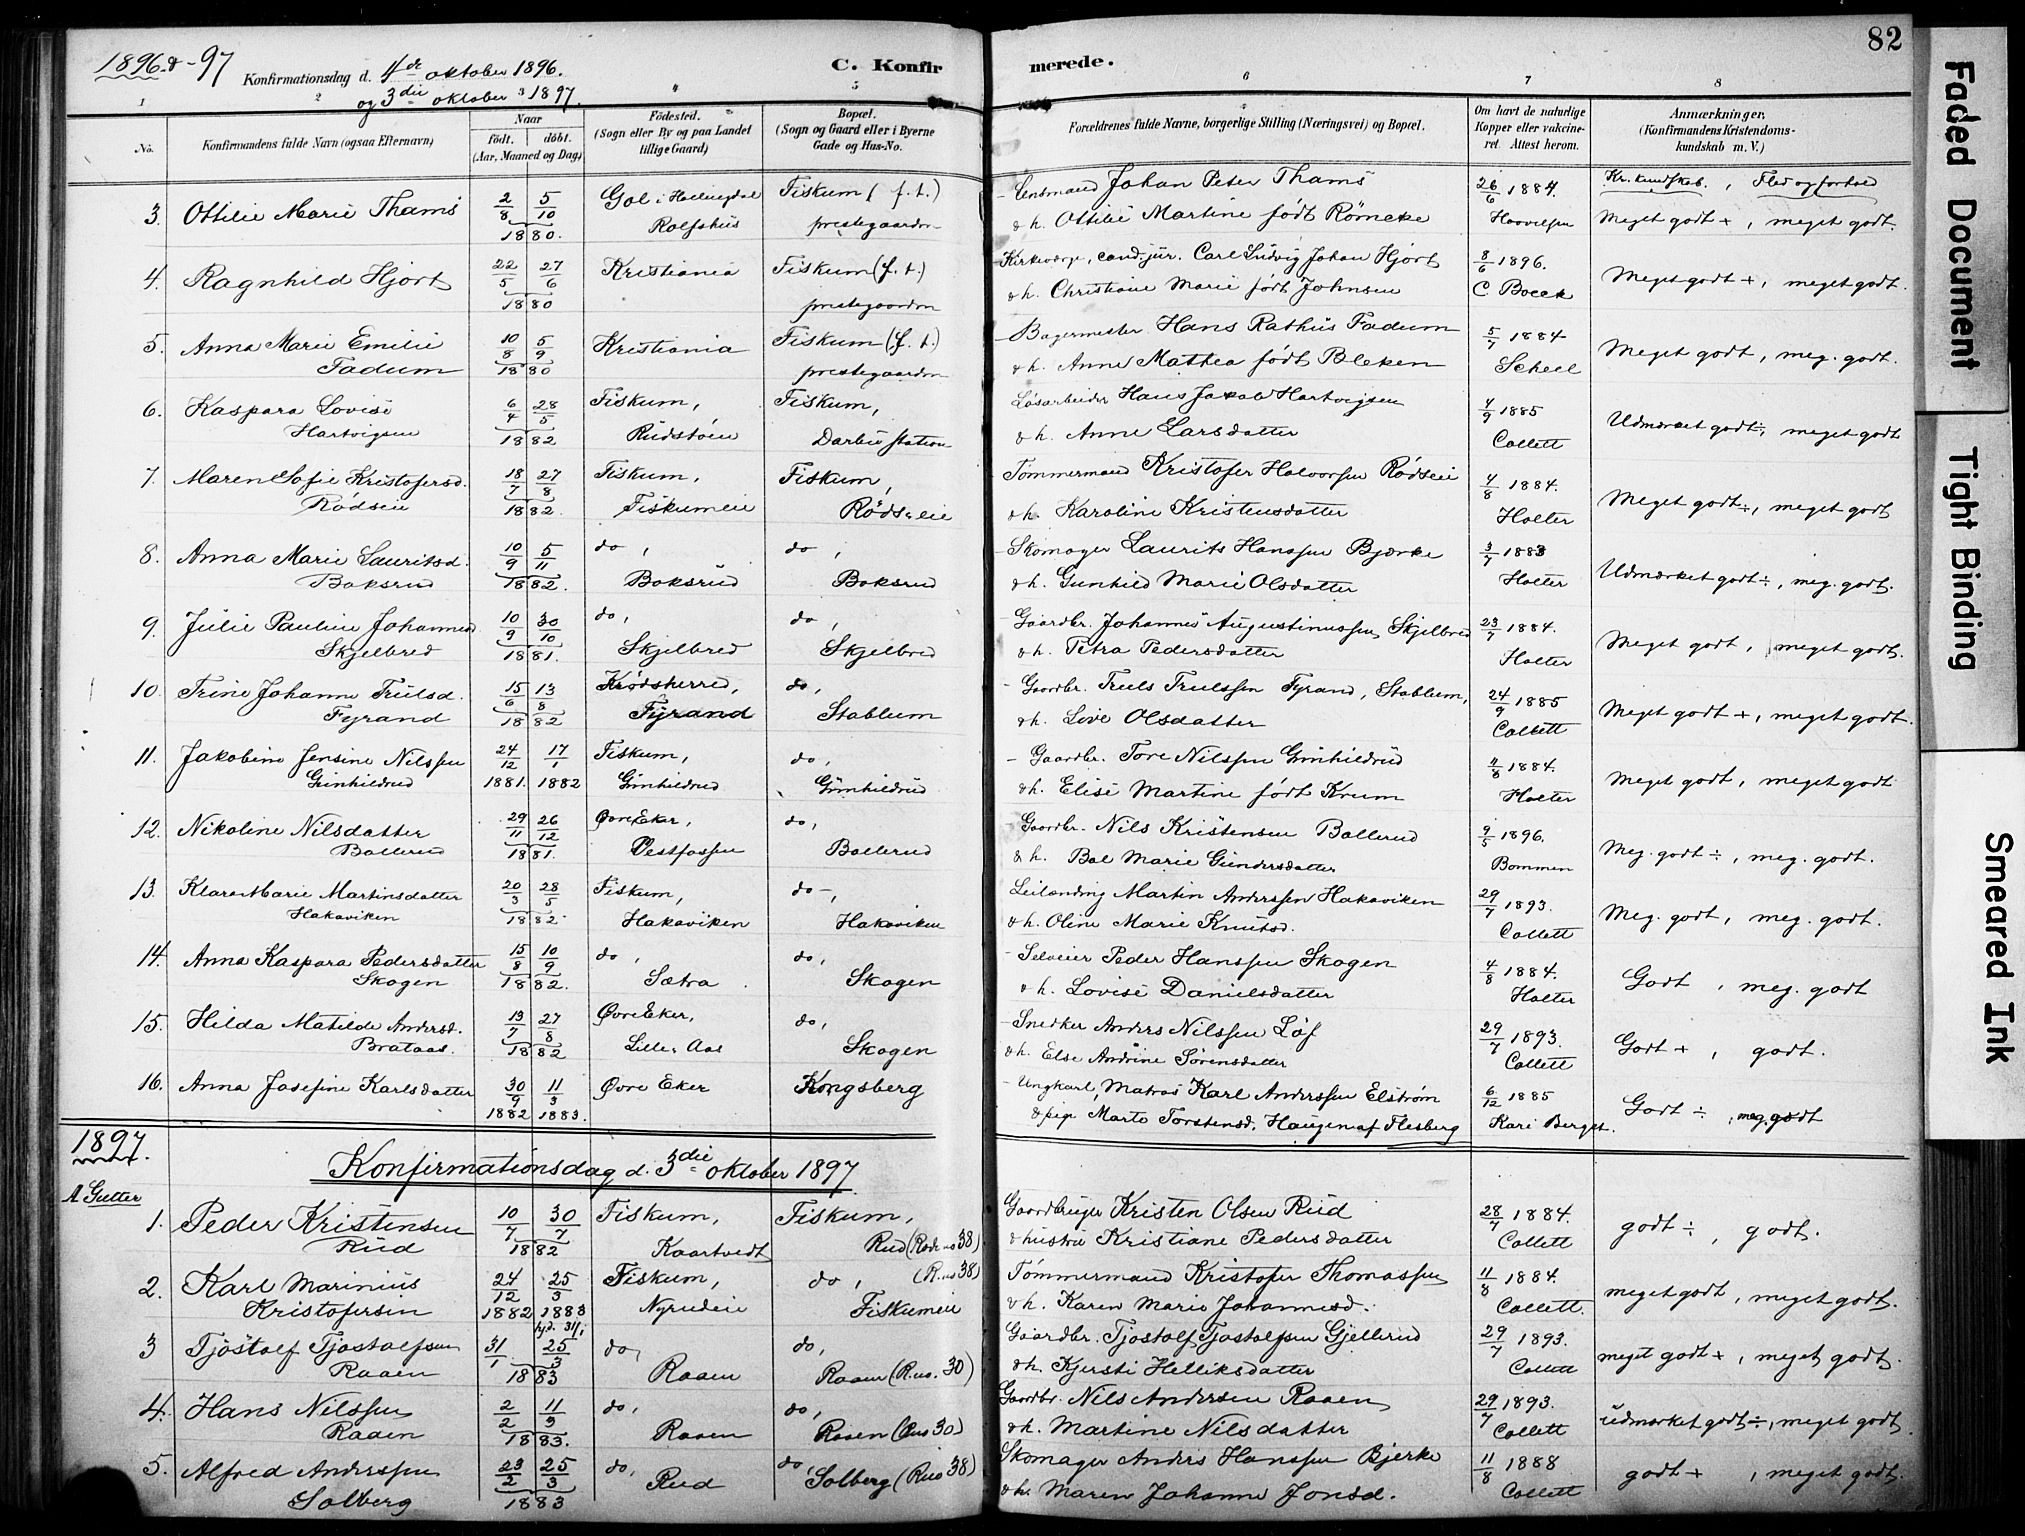 82
1896 & -97 Konfirmationsdag d. 4de oktober 1896. C. Konfirmerede.
og 3die oktober 1897.
1 2 3 4 5 6 7 8
No. Konfirmandens fulde Navn (ogsaa Efternavn) Naar født. døbt. (Aar, Maaned og Dag) Fødested. (Sogn eller By og paa Landet tillige Gaard) Bopæl. (Sogn og Gaard eller i Byerne Gade og Hus-No. Forældrenes fulde Navne, borgerlige Stilling (Næringsvei) og Bopæl. Om havt de naturlige Kopper eller vakcineret. Attest herom. Anmærkninger, (Konfirmandens Kristendomskundskab m. V.)
Kr. kundskab. , Flid og forhold
3. Ottilie Marie Thams 2/8 5/10 Gol i Hallingdal Fiskum (f. t.) Lensmand Johan Peter Thams 26/6 1884.
1880. Rolfshus prestegaarden & h. Ottilie Martine født Römcke Meget godt +, meget godt.
4. Ragnhild Hjort 22/5 27/6 Kristiania Fiskum (f. t.) Kirkeværge, cand. jur. Carl Ludvig Johan Hjort 8/6 1896. Meget godt +, meget godt.
1880 prestegaarden & h. Christiane Marie født Johnsen C. Boeck
5. Anna Marie Emilie 10/8 5/9 Kristiania Fiskum (f. t.) Bagermester Hans Rathus Fadum 5/7 1884 Meget godt, meg. godt.
Fadum 1880 prestegaarden & h. Anne Mathea født Bleken Scheel
6. Kaspara Lovise 6/4 28/5 Fiskum, Fiskum, Løsarbeider Hans Jakob Hartvigsen 4/9 1885 Udmærket godt ÷, meget godt
Hartvigsen 1882 Rudstøen Darbu station & h. Anne Larsdatter Collett
7. Maren Sofie Kristofersd. 18/7 27/8 Fiskum, Fiskum, Tømmermand Kristofer Halvorsen Rødseie 4/8 1884. Meget godt ÷, meget godt
Rødseie 1882. Fiskumeie Rødseie & h. Karoline Kristensdatter Holter
8. Anna Marie Lauritsd. 10/9 5/11 do, do, Skomager Laurits Hanssen Bjærke 3/7 1883 Udmærket godt ÷, meg. godt.
Boksrud 1882. Boksrud Boksrud & h. Gunhild Marie Olsdatter Holter
9. Julie Pauline Johannesd 10/9 30/10 do, do, Gaardbr. Johannes Augustinussen Skjelbred 23/7 1884. Meget godt, meget godt.
Skjelbred 1881. Skjelbred Skjelbred & h. Petra Pedersdatter Holter
10. Trine Johanne Trulsd. 15/6 13/8 Krødsherred, do, Gaardbr. Truls Trulssen Fyrand, Stablum, 24/9 1885 Meget godt +, meget godt.
Fyrand 1882 Fyrand Stablum & h. Live Olsdatter Collett
11. Jakobine Jensine Nilssen 24/12 17/1 Fiskum, do, Gaardbr. Tore Nilssen Gunhildrud 4/8 1884. Meget godt, meget godt
Gunhildrud 1881. 1882 Gunhildrud Gunhildrud & h. Elise Martine født Krum Holter
12. Nikoline Nilsdatter 29/11 26/12 Øvre Eker, do, Gaardbr. Nils Kristensen Bollerud 9/5 1896. Meg. godt ÷, meg. godt.
Bollerud 1881. Vestfossen Bollerud & h. Bol Marie Gundersdatter Bommen
13. Klara Marie Martinsdatter 20/3 28/5 Fiskum, do, Leilænding Martin Anderssen Hakaviken 29/7 1893. Meg. godt, meg. godt.
Hakaviken 1882. Hakaviken Hakaviken & h. Oline Marie Knutsd. Collett
14. Anna Kaspara Pedersdatter 15/8 10/9 do, do, Selveier Peder Hanssen Skogen 4/8 1884. Godt, meg. godt
Skogen 1882. Sætra Skogen & h. Lovise Danielsdatter Holter
15. Hilda Matilde Andersd. 13/7 27/8 Øvre Eker, do, Snedker Anders Nilssen Løf 29/7 1893. Godt +, godt.
Brataas. 1882 Lille Aas Skogen & h. Else Andrine Sørensdatter Collett
16. Anna Josefine Karlsdatter 30/9 11/3 Øvre Eker Kongsberg Ungkarl, Matros Karl Anderssen Elstrøm 6/12 1885 Godt ÷, meg. godt
1882 1883. & pige Marte Torstensd. Haugen af Flesberg Kari Berget.
1897. Konfirmationsdag d. 3die oktober 1897.
A Gutter
1. Peder Kristensen 10/7 30/7 Fiskum, Fiskum, Gaardbruger Kristen Olsen Rud 28/7 1884. godt ÷, godt.
Rud 1882 Kaartvedt Rud (Rode no 38) & hustru Kristiane Pedersdatter Collett
2. Karl Marinius 24/12 25/3 Fiskum, do, (R. no 38) Tømmermand Kristofer Thomassen 11/8 1884. meget godt, meget godt.
Kristofersen 1882 1883 Nyrudeie Fiskumeie & h. Karen Marie Johannesd. Collett.
hjd. 31/1
3 Tjøstolf Tjostolfsen 31/1 25/3 do, do, Gaardbr. Tjostolf Tjostolfsen Gjellerud 29/7 1893. meget godt +, meget godt.
Raaen 1883 Raaen Raaen (R. no. 30) & h. Kjersti Helliksdatter Collett
4. Hans Nilssen 2/2 11/3 do, do, Gaardbr. Nils Andersen Raaen 29/7 1893. udmærket godt ÷, meget godt
Raaen 1883. Raaen Raaen (R no 30) & h. Martine Nilsdatter Collett
5. Alfred Anderssen 23/2 25/3 do, do Skomager Anders Hanssen Bjerke 11/8 1888 godt +, meget godt.
Solberg 1883 Rud Solberg (R no 38) & h. Maren Johanne Jonsd. Collett
Faded Document
Tight Binding
Smeared Ink